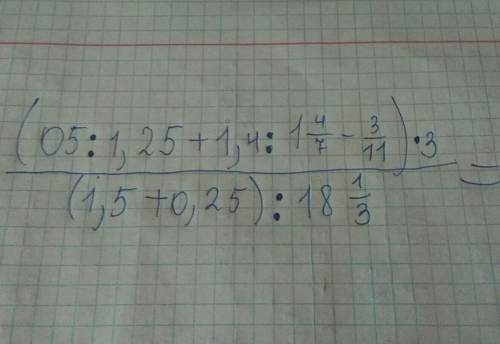 (05:1,25+1,4:1 4/7 - 3/11)·3
(1,5+0,25):18 1/3 =